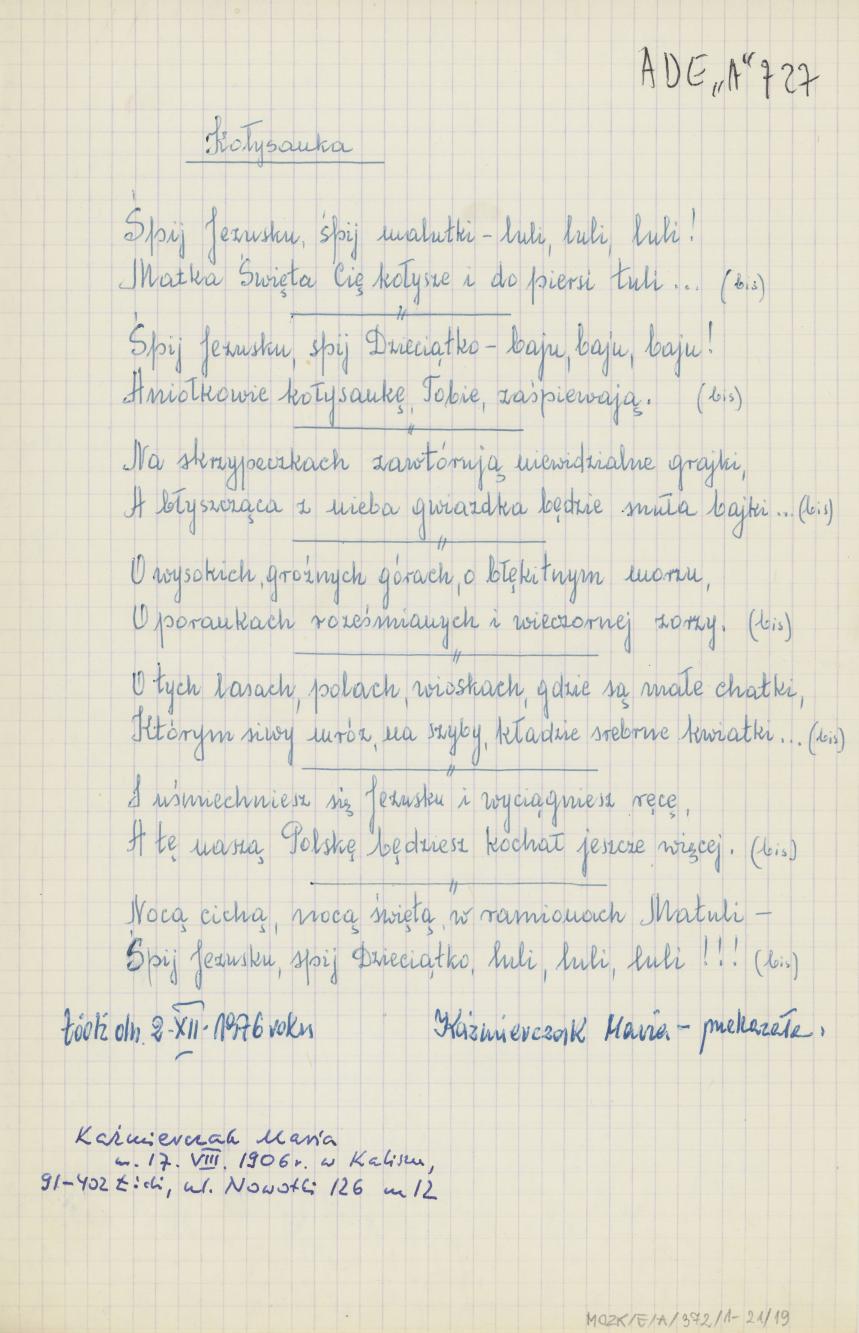 ADE „A“ 727
Kołysanka
Śpij Jezusku, śpij malutki – luli, luli, luli!
Matka Święta Cię kołysze i do piersi tuli... (bis)
Śpij Jezusku, spij Dzieciątko – baju, baju, baju!
Aniołkowie kołysankę, Tobie, zaśpiewają. (bis)
Na skrzypeczkach zawtórują niewidzialne grajki,
A błyszcząca z nieba gwiazdka będzie snuła bajki... (bis)
O wysokich, groźnych górach, o błękitnym morzu,
O porankach roześmianych i wieczornej zorzy. (bis)
O tych lasach, polach, wioskach, gdzie są małe chatki,
Którym siwy mróz, na szyby, kładzie srebrne kwiatki... (bis)
I uśmiechniesz się Jezusku i wyciągniesz ręcę,
A tę naszą Polskę będziesz kochał jeszcze więcej. (bis)
Nocą cichą, nocą świętą, w ramionach Matuli –
Śpij Jezusku, spij Dzieciątko, luli, luli, luli!!! (bis)
Łódź dn. 2-XII-1976 roku Kaźmierczak Maria – przekazała.
Kaźmierczak Maria
ur. 17. VIII. 1906 r. w Kaliszu,
91-402 Łódź, ul. Nowotki 126 m 12
MOZK/E/A/372/1-21/19